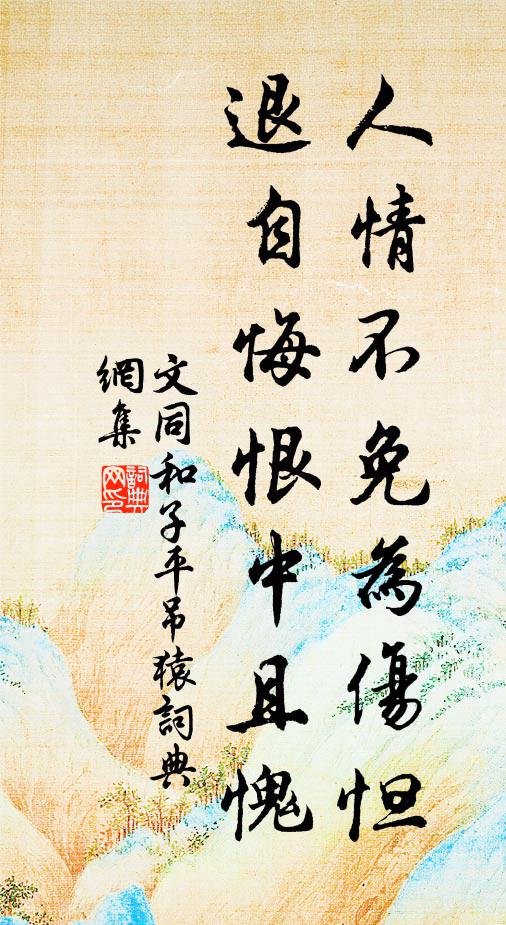 人情不免為傷怛
退自悔恨中且愧
文同和子平吊猿詞典
網集
詞典
網印